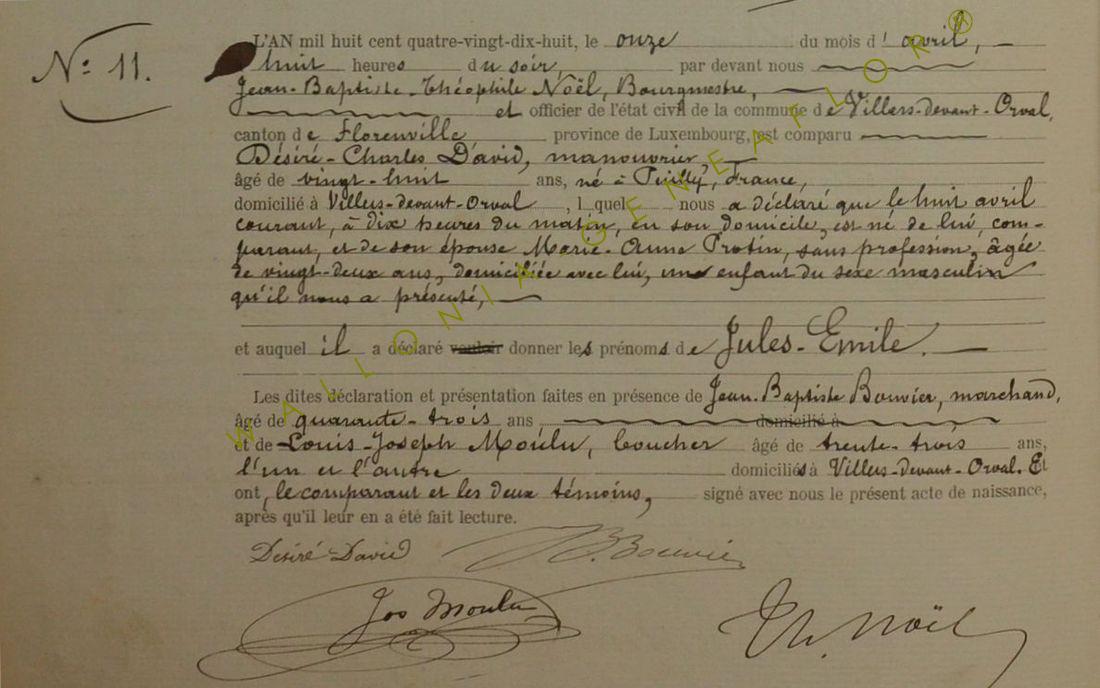 N° 11.
L'AN mil huit cent quatre-vingt-dix-huit, le onze du mois d'avril,
huit heures du soir, par devant nous
Jean-Baptiste-Théophile Noël, Bourgmestre,
et officier de l'état civil de la commune de Villers-devant-Orval,
canton de Florenville province de Luxembourg, est comparu
Désiré-Charles David, manouvrier,
âgé de vingt-huit ans, né à Puilly, France,
domicilié à Villers-devant-Orval, lequel nous a déclaré que le huit avril
courant, à dix heures du matin, en son domicile, est né de lui, com-
parant, et de son épouse Marie-Anne Protin, sans profession, âgée
de vingt-deux ans, domiciliée avec lui, un enfant du sexe masculin
qu'il nous a présenté,
et auquel il a déclaré vouloir donner les prénoms de Jules-Emile.
Les dites déclaration et présentation faites en présence de Jean-Baptiste Bouvier, marchand,
âgé de quarante-trois ans, domicilié à
et de Louis-Joseph Moulu, boucher âgé de trente-trois ans,
l'un et l'autre domiciliés à Villers-devant-Orval. Et
ont, le comparant et les deux témoins, signé avec nous le présent acte de naissance,
après qu'il leur en a été fait lecture.
Désiré David JB Bouvier
Jos Moulu
Th. Noël
WALLONIA GENEAFLORE